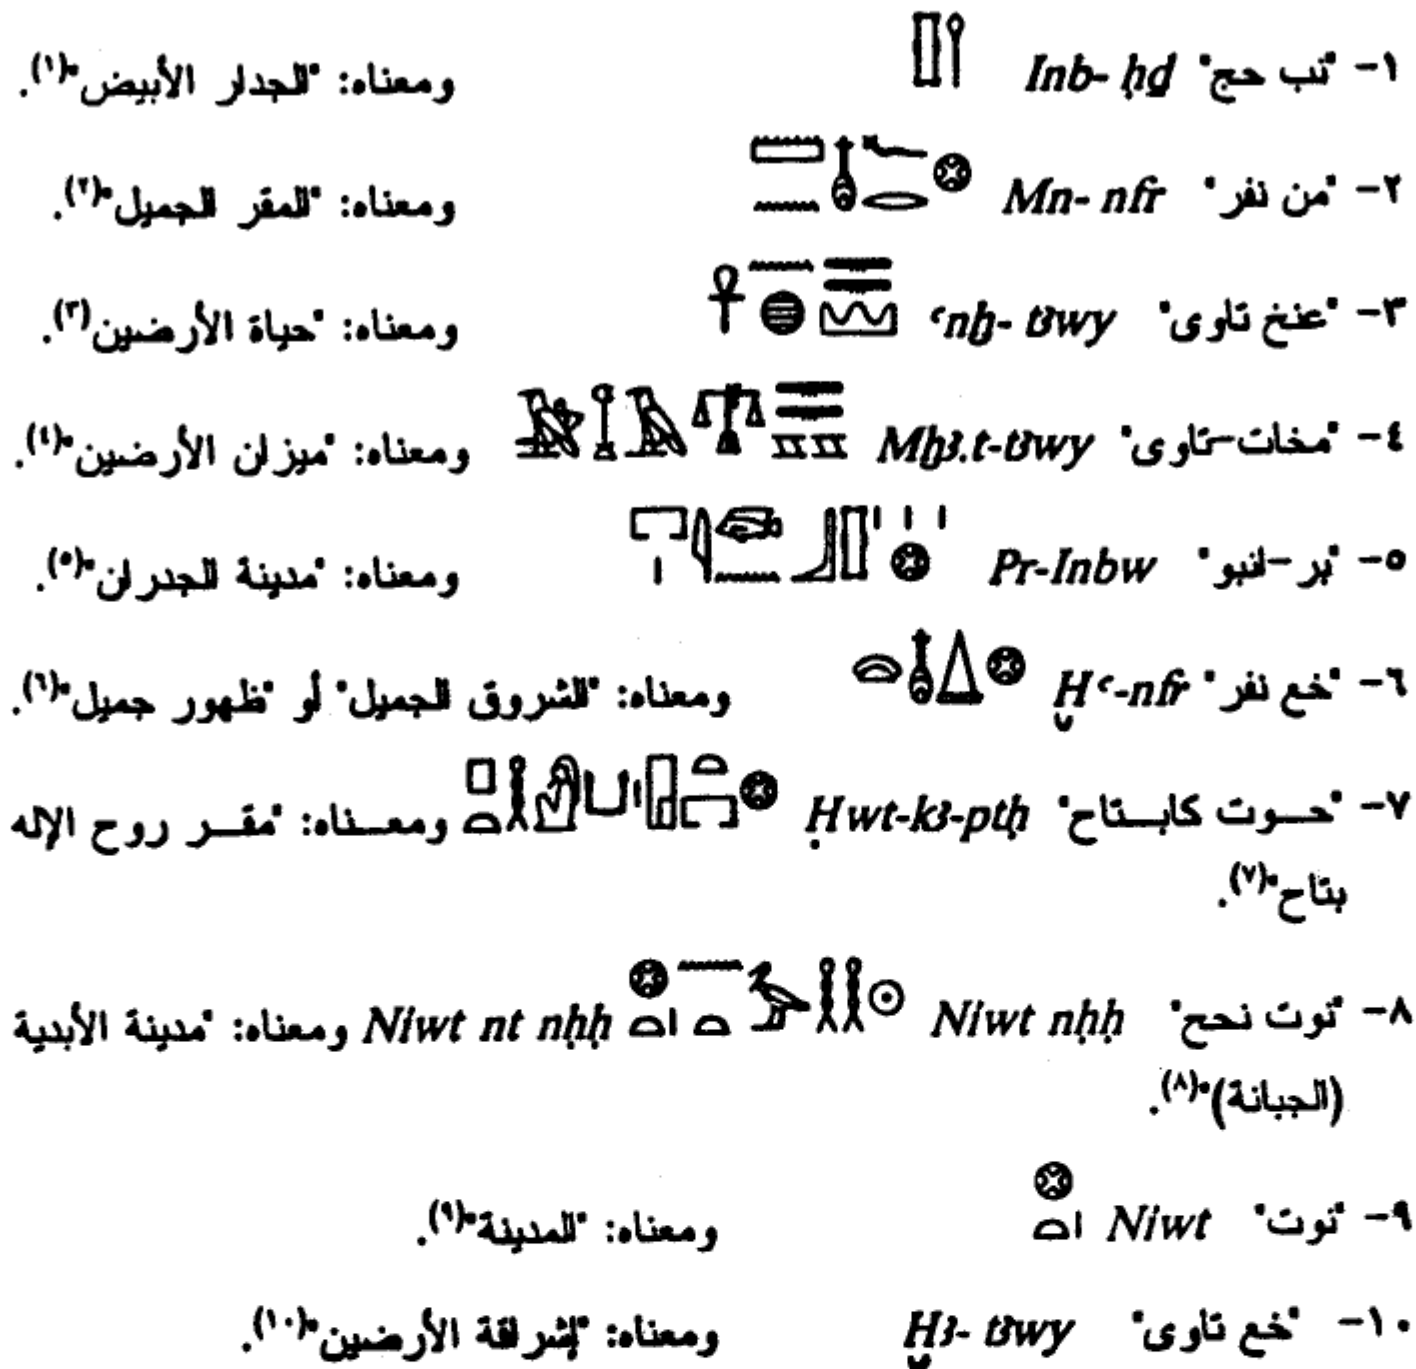 ١- "نب حج" Inb- ḥḏ ومعناه: "الجدار الأبيض"(١).
٢- "من نفر" Mn- nfr ومعناه: "المقر الجميل"(٢).
٣- "عنخ تاوى" ꜥnḫ- tꜣwy ومعناه: "حياة الأرضين(٣).
٤- "مخات-تاوى" Mḫꜣ.t-tꜣwy ومعناه: "ميزان الأرضين"(٤).
٥- "بر-انبو" Pr-Inbw ومعناه: "مدينة الجدران"(٥).
٦- "خع نفر" Ḫꜥ-nfr ومعناه: "الشروق الجميل" أو "ظهور جميل"(٦).
٧- "حوت كابتاح" Ḥwt-kꜣ-ptḥ ومعناه: "مقر روح الإله
بتاح"(٧).
٨- "نوت نحح" Niwt nḥḥ Niwt nt nḥḥ ومعناه: "مدينة الأبدية
(الجبانة)"(٨).
٩- "نوت" Niwt ومعناه: "المدينة"(٩).
١٠- "خع تاوى" Ḫꜣ- tꜣwy ومعناه: "إشراقة الأرضين"(١٠).